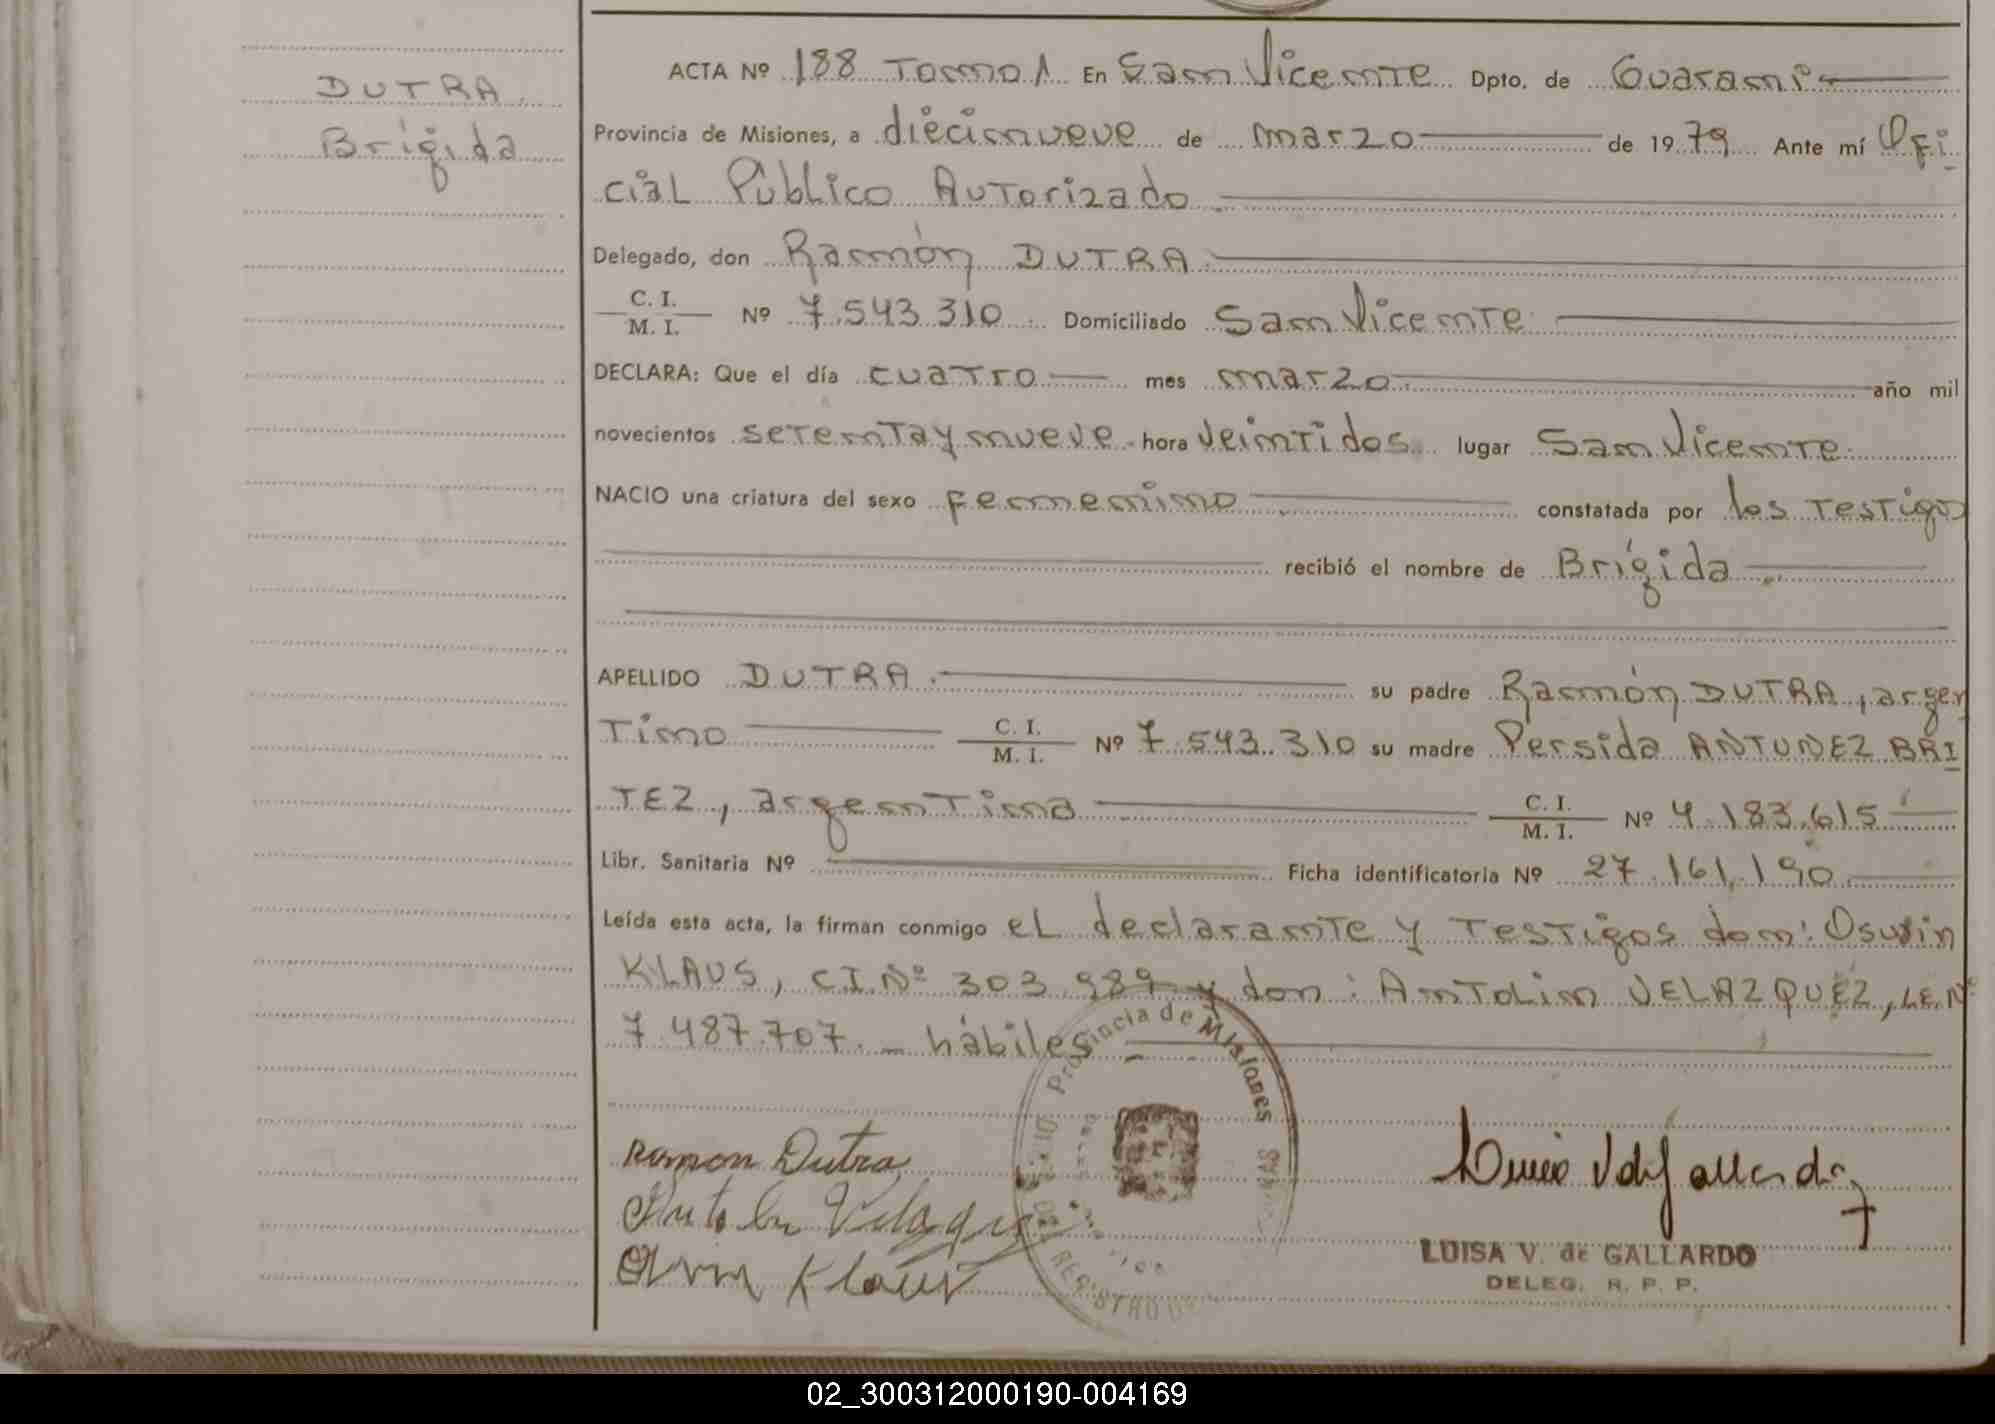 DUTRA
Brígida
ACTA Nº 188 Tomo 1 En San Vicente Dpto. de Guaraní
Provincia de Misiones, a diecinueve de marzo de 1979 Ante mí Ofi
cial Público Autorizado
Delegado, don Ramón DUTRA
C. I.
M. I. Nº 7.543.310 Domiciliado San Vicente
DECLARA: Que el día cuatro mes marzo año mil
novecientos setenta y nueve hora veintidos lugar San Vicente
NACIO una criatura del sexo femenino constatada por los testigos
recibió el nombre de Brígida
APELLIDO DUTRA su padre Ramón DUTRA, argen
tino C. I. M. I. Nº 7.543.310 su madre Persida ANTUNEZ BRI
TEZ, argentina C. I. M. I. Nº 4.183.615
Libr. Sanitaria Nº Ficha identificatoria Nº 27.161.190
Leída esta acta, la firman conmigo el declarante y testigos don: Osurin
KLAUS, C.I.Nº 303.989 y don: Antolin VELAZQUEZ, L.E.Nº
7.487.707.- hábiles
Provincia de Misiones
REGISTRO
Ramon Dutra
Antolin Velazquez
Klaus
LUISA V. de GALLARDO
DELEG. R. P. P.
02_300312000190-004169